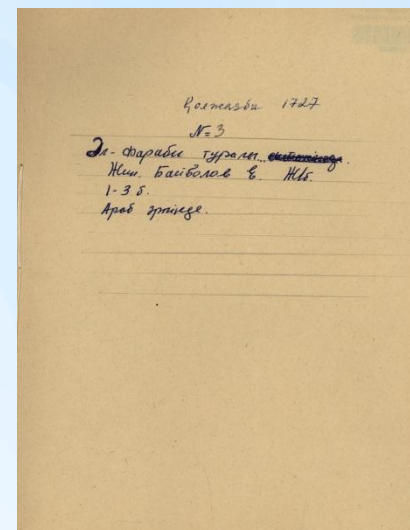 Қолжазба 1727
№ 3
Әл-Фараби туралы
Жин. Байболов Е.
1-3 б.
Араб әрпінде.